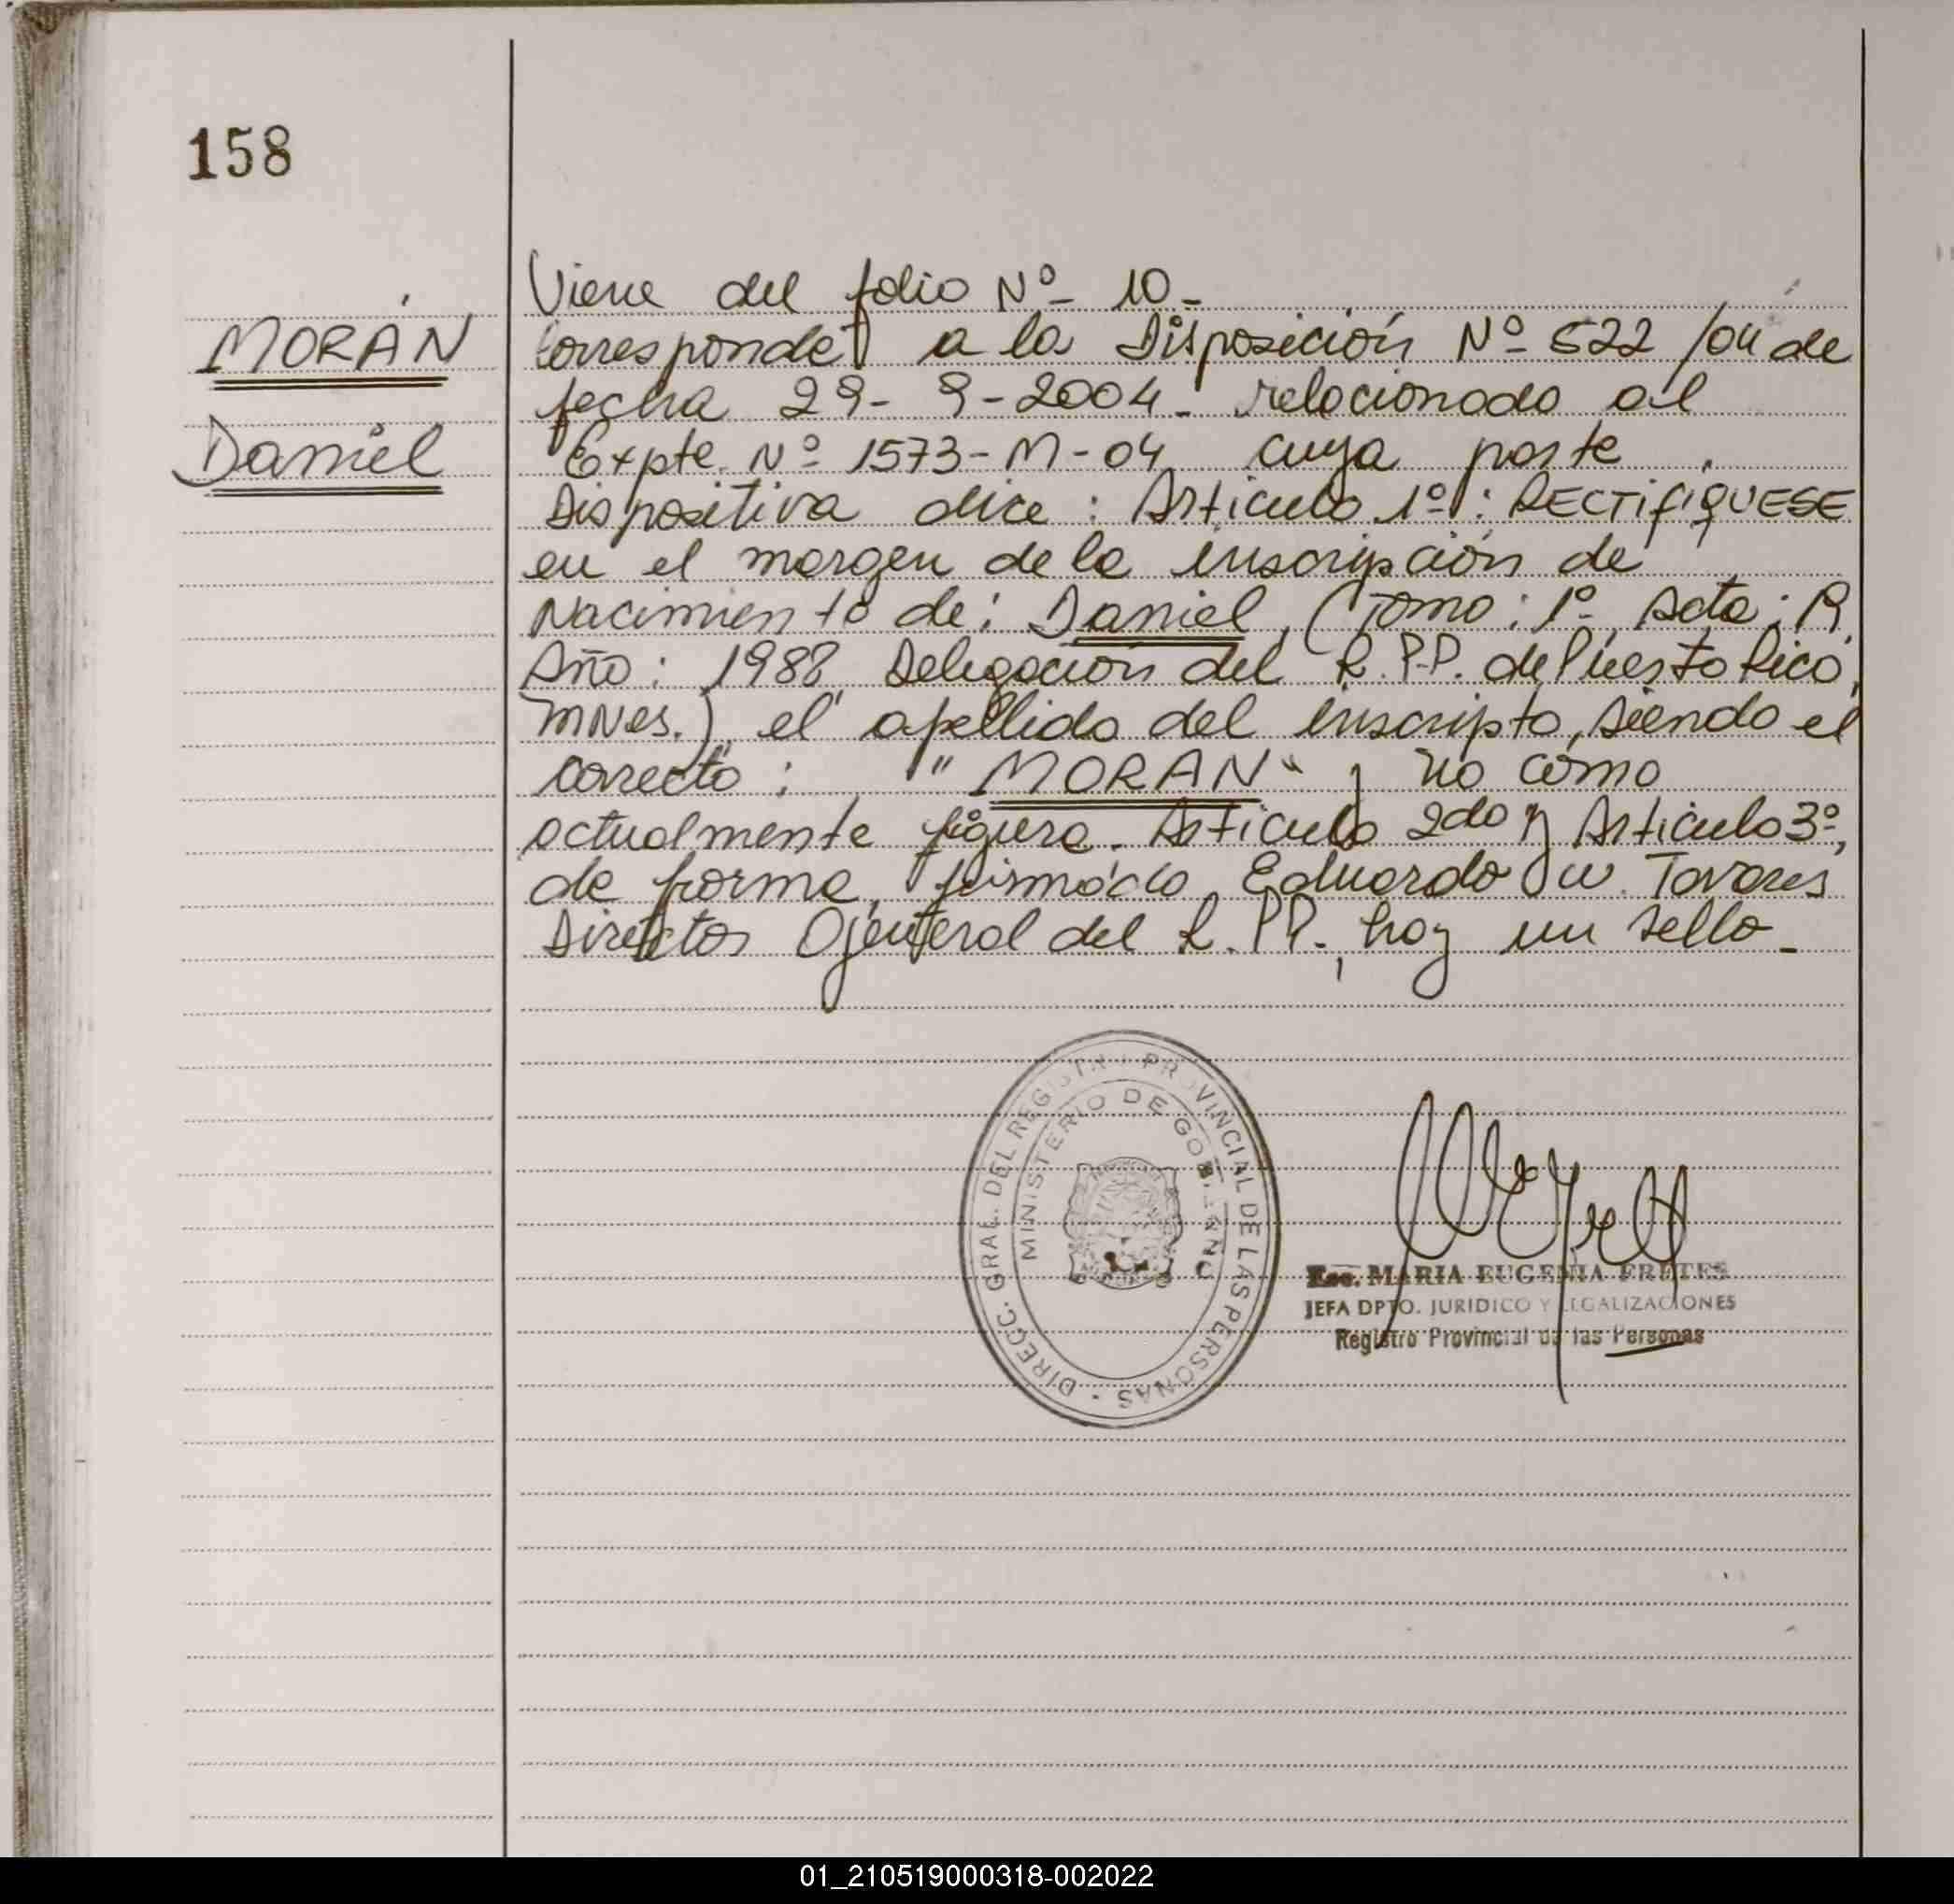 158
MORÁN
Daniel
Viene del folio Nº 10-
Corresponde a la Disposición Nº 522/04 de
fecha 29-9-2004- relacionado al
Expte. Nº 1573-M-04 cuya parte
Dispositiva dice: Articulo 1º: RECTIFIQUESE
en el margen de la inscripción de
Nacimiento de: Daniel, (Tomo: 1º Acta:
Año: 1988 Delegación del R.P.P. de Puerto Rico,
MNes.), el apellido del inscripto, siendo el
correcto: "MORAN" y no como
actualmente figura. Articulo 2do y Articulo 3º,
de forma, firmado, Eduardo W. Tavares
Director General del R.P.P., hay un sello-
DIRECC. GRAL. DEL REGISTRO PROVINCIAL DE LAS PERSONAS
MINISTERIO DE GOBIERNO
Esc. MARIA EUGENIA FRETES
JEFA DPTO. JURIDICO Y LEGALIZACIONES
Registro Provincial de las Personas
01_210519000318-002022